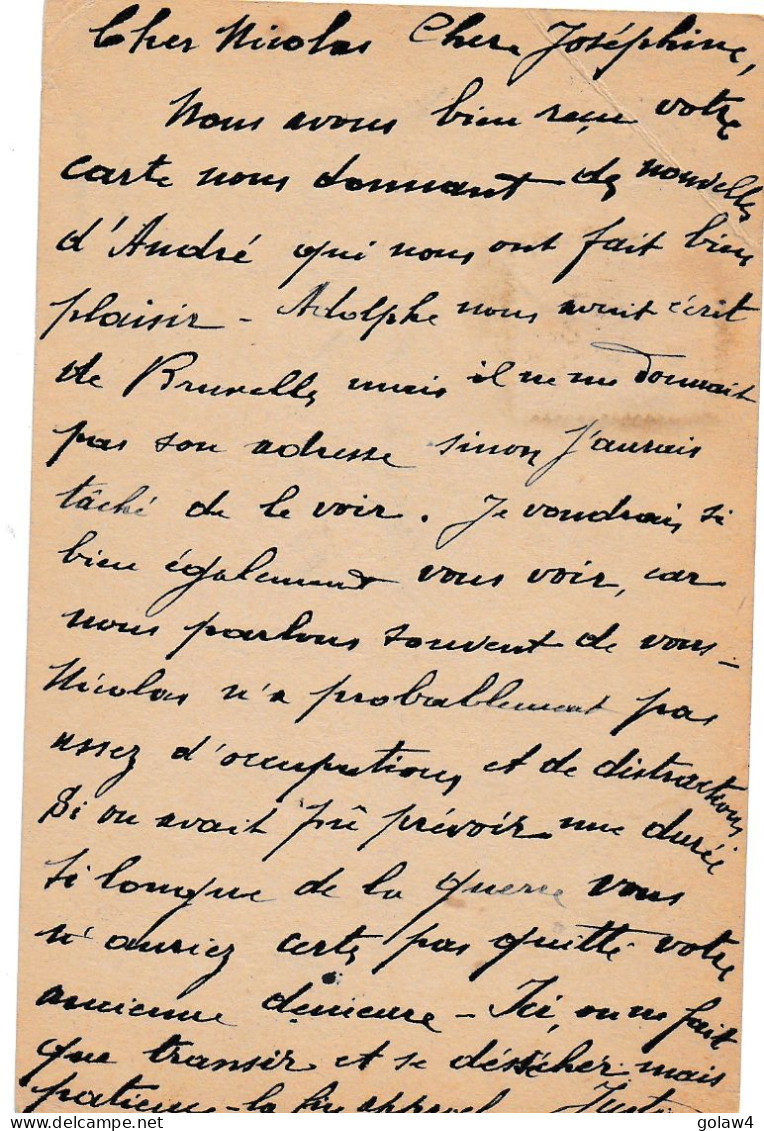 Cher Nicolas Chere Joséphine,
Nous avons bien reçu votre
carte nous donnant des nouvelles
d'André qui nous ont fait bien
plaisir - Adolphe nous avait écrit
de Bruxelles mais il ne me donnait
pas son adresse sinon j'aurais
tâché de le voir. Je voudrais si
bien également vous voir, car
nous parlons souvent de vous -
Nicolas n'a probablement pas
assez d'occupations et de distractions
Si on avait pû prévoir une durée
si longue de la guerre vous
n'auriez certes pas quitté votre
ancienne demeure - Ici, on ne fait
que transir et se déssécher mais
patience - la fin
golaw4